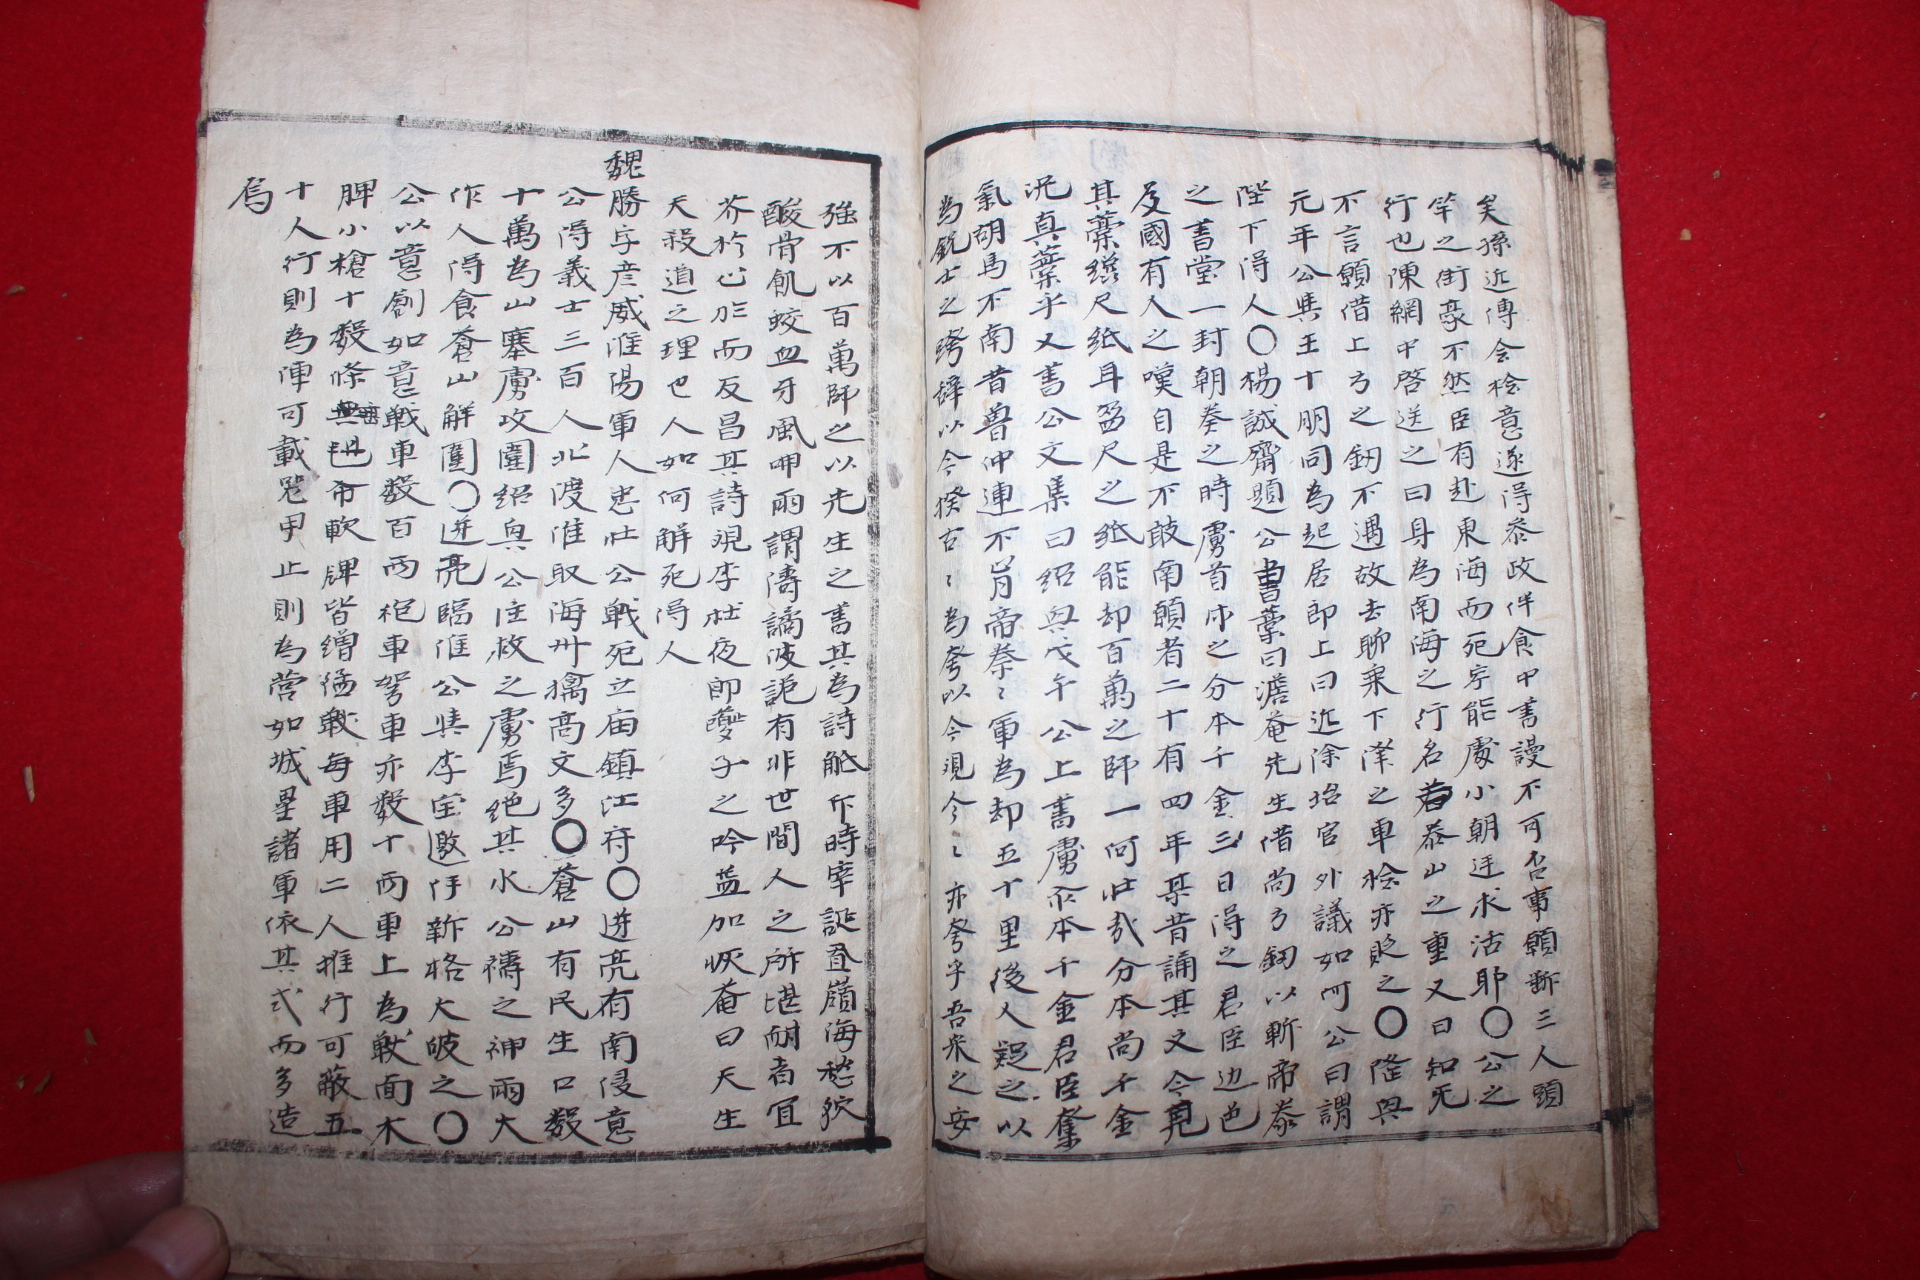 矣孫近傳会桧意遂得叅政伴食中書謾不可否事願斬三人頭
竿之街豪不然臣有赴東海而死寧能處小朝廷求活耶〇公之
行也陳綱中啓送之曰身為南海之行名若泰山之重又曰知无
不言願借上方之釼不遇故去聊乗下澤之車桧亦貶之〇隆興
元年公與王十朋同為起居郎上曰近除坮官外議如何公曰謂
陛下得人〇楊誠齋題公書藁曰澹菴先生借尚方釼以斬帝秦
之書堂一封朝奏之時虜首市之分本千金三日得之君臣边色
及國有人之嘆自是不敢南顧者二十有四年某昔誦其文今見
其藁纔尺紙耳盈尺之紙能却百萬之師一何壮㢤分本尚千金
况真藁乎又書公文集曰紹興戊午公上書虜分本千金君臣奪
氣胡馬不南昔魯仲連不肯帝秦〻軍為却五十里後人疑之以
為説士之誇辞以今揆古〻為夸以今視今〻亦夸乎吾宋之安
強不以百萬師之以先生之書其為詩觝斥時宰誕寘嶺海愁狖
酸骨飢蛟血牙風呻雨謂濤譎波詭有非世間人之所堪耐者宜
芥於心㳂而反昌其詩視李杜夜郎夔子之吟益加恢菴曰天生
天殺道之理也人如何解死得人
魏勝字彦威淮陽軍人忠壮公戦死立庙鎮江府〇逬亮有南侵意
公得義士三百人北渡淮取海州擒高文多〇蒼山有民生口数
十萬為山寨虜攻圍紹興公徃救之虜焉絶其水公禱之神雨大
作人得食蒼山解圍〇逬亮臨淮公與李宝邀于新格大破之〇
公以意創如意戦車数百兩炮車驽車亦数十兩車上為獣面木
牌小槍十数條垂毡布軟牌皆繒備戦每車用二人推行可蔽五
十人行則為陣可載器甲止則為营如城壘諸軍依其式而多造
焉